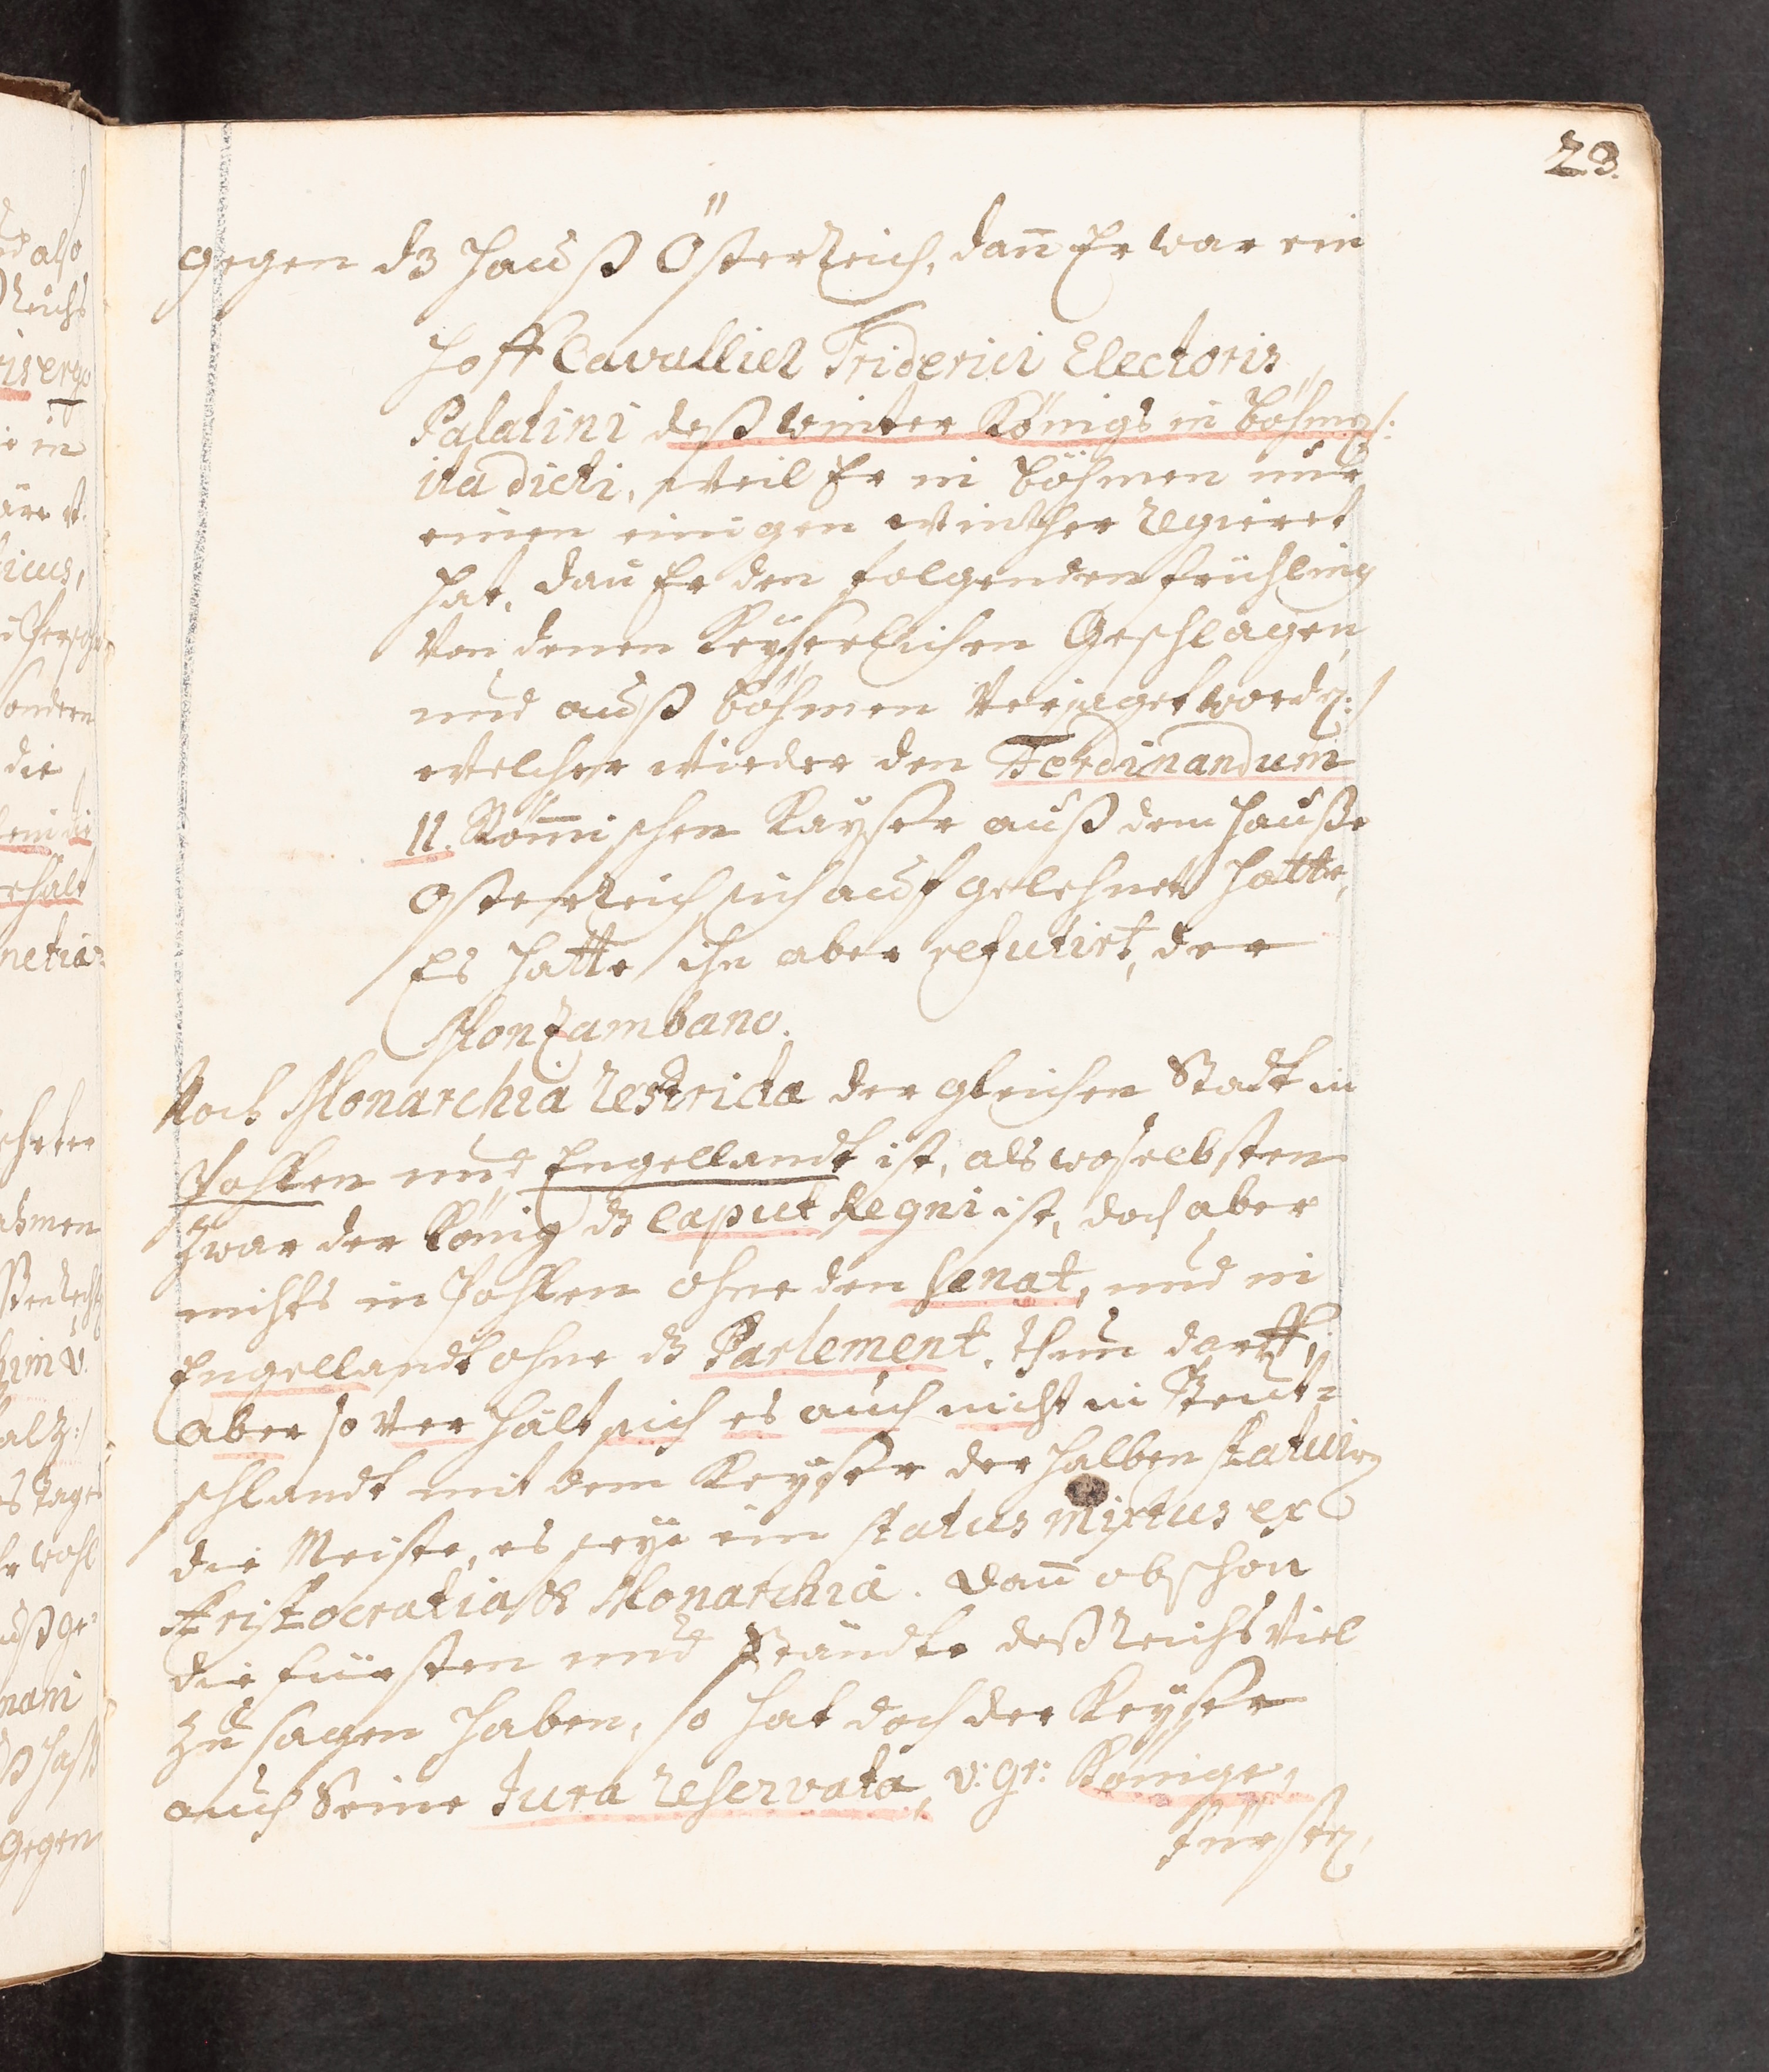 23.
gegen dz Hauß Österreich, dann Er war ein
Hoff Cavallier Friderici Electoris
Palatini deß winter Königs in Böhmen /:
ita dicti, weil Er in Böhmen nur
einen einigen winther regieret
hat, dan Er den folgenden frühling
von denen Keÿserlichen Geschlagen,
und auß Böhmen verjaget worden :/
welcher wieder den Ferdinandum
II. Römischen Kayser auß dem Hauße
Osterreich sich aufgelehnet hatte,
Es hatte ihn aber refutirt, der
Monzambano.
Noch Monarchia restricta der gleichen Stadt in
Pohlen und Engellandt ist, als woselbsten
zwar der König dz caput Regni ist, doch aber
nichts in Pohlen ohne den Senat, und in
Engellandt ohne dz Parlement, thun darff,
aber so verhält sich es auch nicht in Teut=
schlandt mit dem Keÿser derhalben statuiren
die Meiste, es seÿe ein status mixtus ex
Aristocratia & Monarchia. dann obschon
die fürsten und Ständte deß Reichs viel
zu sagen haben, so hat doch der Keÿser
auch Seine Jura reservata, v: gr: Könige,
fürsten,